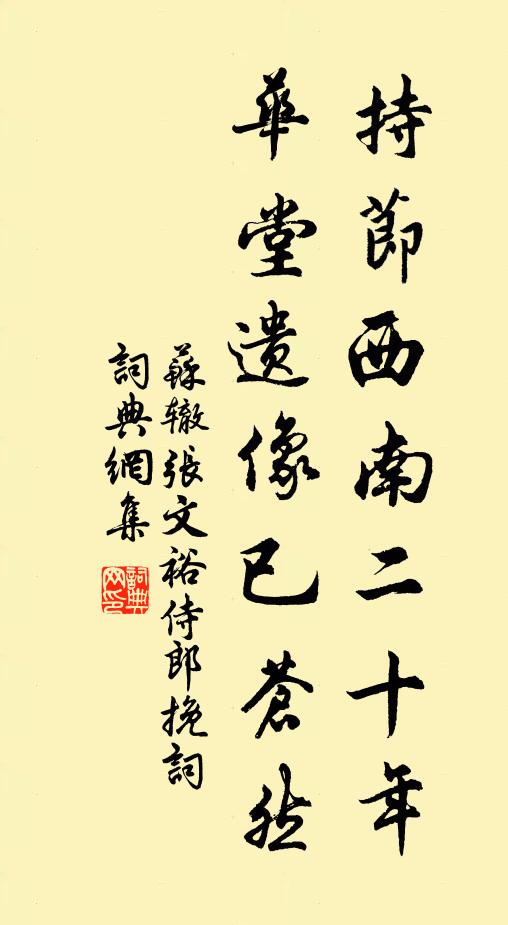 持節西南二十年
華堂遺像已蒼然
蘇辙張文裕侍郎挽詞
詞典網集
詞典网印